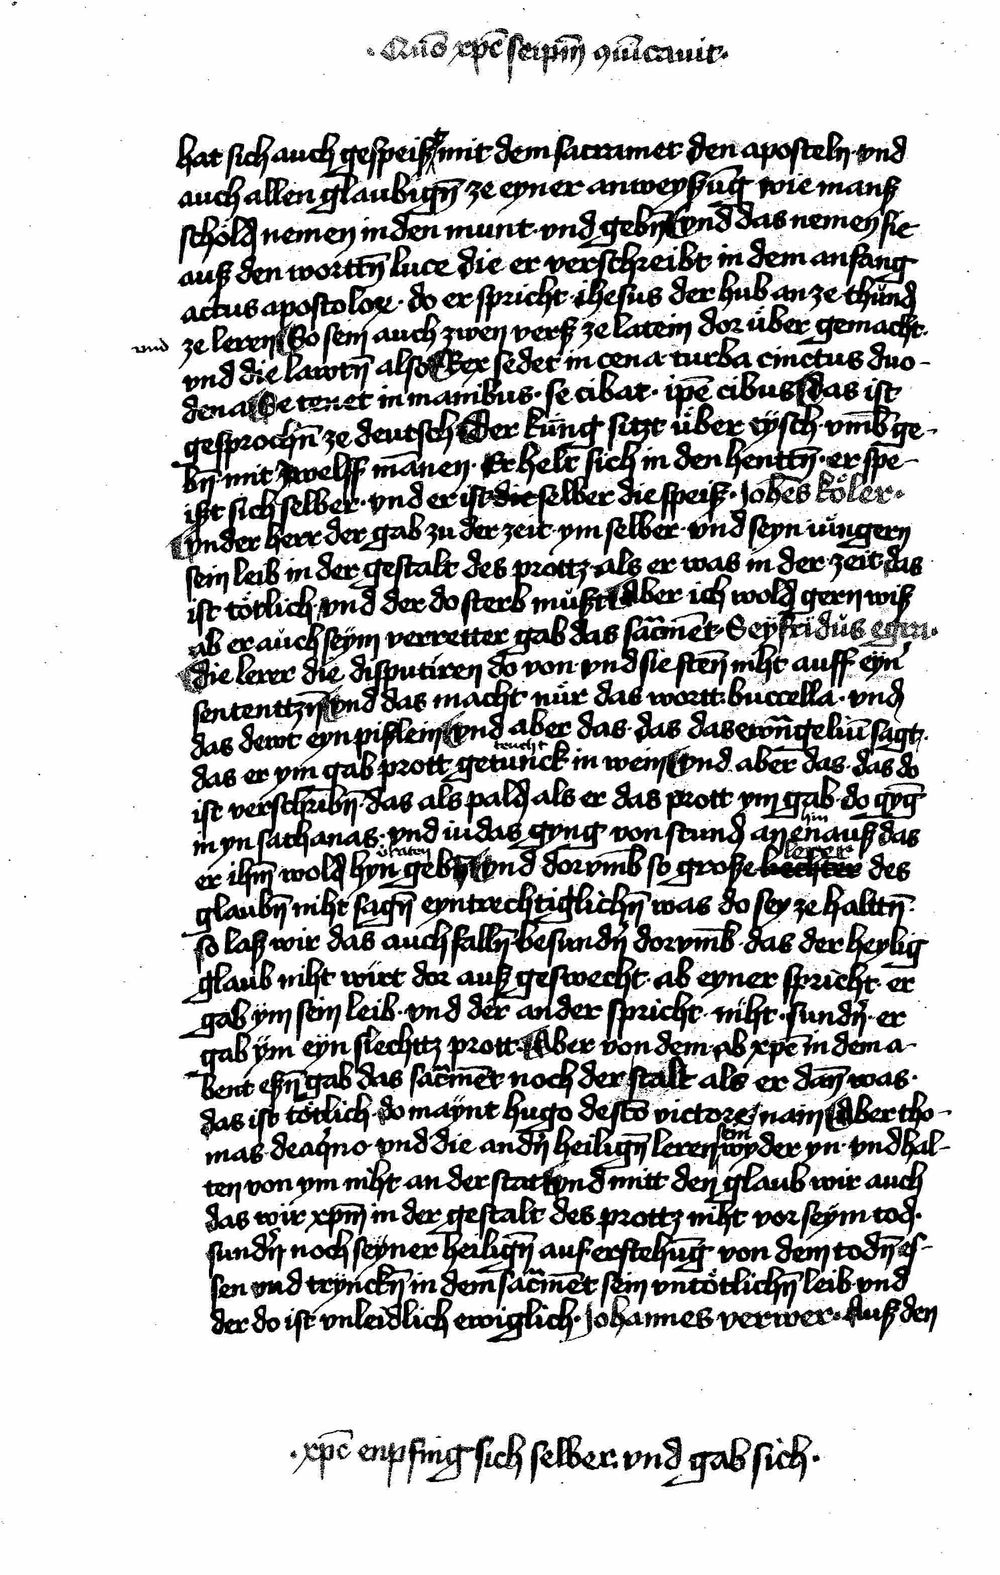 · Quō xp̄c seip̄m 9mūicavit ·
hat sich auch gespeist mit dem sacramet den aposteln · vnd
auch allen glaubign̄ ze eyner anweyßūg wie manß
schold nemen in den munt · vnd gebn̄ vnd das nemen sie
auß den wortn̄ luce die er verschreibt in dem anfang
actus apostoloꝝ · do er spricht · ihesus der hub an ze thůnd
vnd ze leren So sein auch zwen verß ze latein dor über gemacht ·
vnd die lawtn̄ also Rex sedet in cena turba cinctus duo-
dena Se tenet in manibus · se cibat · ip̄e cibus Das ist
gesprochn̄ ze deutsch Der kūng sitzt über tÿsch · vmb̄ ge-
bn̄ · mit zwelff mānen · Er helt sich in den hentn̄ · er spē-
ißt sich selber · vnd er ist die selber die speiß · Joh̄es köler ·
Vnder herr der gab zu der zeit · ym selber · vnd seyn iüngern
sein leib in der gestalt des prottz · als er was in der zeit das
ist tötlich · vnd der do sterb mußt Aber ich wold gern wiß
ab er auch seym verretter gab das sac̄mēt · Seyfridus egen ·
die lerer die disputiren do von · vnd sie sten̄ niht auff eyn̄
sententtzn̄ Vnd das macht nür das wortt · buccella · vnd
das dewt eyn pißlein Vnd aber das · das das ewāngeliū sagt ·
das er ym gab prott getunck teucht in wein Vnd aber das · das do
ist verschribn̄ · das als pald als er das prott ym gab · do gynḡ
in yn sathanas · vnd iudas gyng von stund an hin auß das
er ihm̄ wold hyn gebn̄ vraten Vnd dorvmb̄ so große lerer des
glaubn̄ niht sagn̄ eyntrechtiglichn̄ was do sey ze haltn̄ ·
so laß wir das auch falln̄ · besundn̄ dorvmb̄ · das der heylig
glaub niht würt dor auß geswecht · ab eyner spricht · er
gab ym sein leib · vnd der ander spricht · niht · sundn̄ · er
gab ÿm eyn slechttz prott · Aber von dem · ab xp̄c in dem a-
bent eßn̄ gab das sac̄mēt noch der stalt als er dan̄ was ·
das ist tötlich · do maÿnt hugo de sc̄o victore nain Aber tho-
mas · de aq̄no · vnd die andn̄ heilign̄ leren sein wyder yn · vnd hal-
ten von ym niht · an der stat Vnd mitt den glaub wir auch
das wir xp̄m in der gestalt des prottz niht vor seym tod ·
sundn̄ noch seyner heilign̄ auf erstehūg von dem todn̄ eſ-
sen vnd trynckn̄ in dem sac̄mēt sein vntötlichn̄ leib · vnd
der do ist vnleidlich ewiglich · Johannes verwer · Auß den
· xp̄c enpfing sich selber · vnd gab sich ·